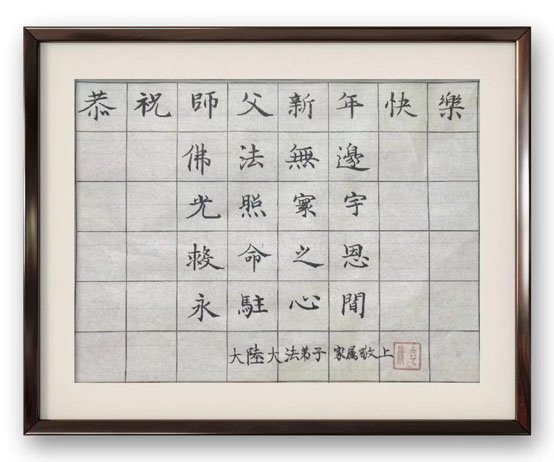 恭祝師父新年快樂
佛法無邊
光照寰宇
救命之恩
永駐心間
大陸大法弟子 家属敬上